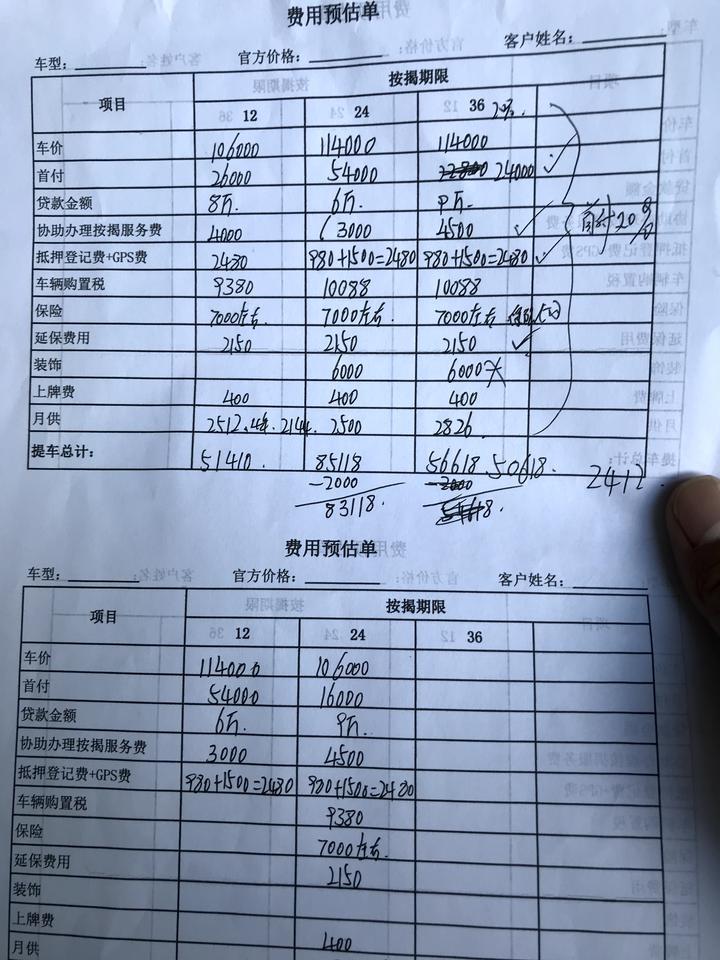 费用预估单
车型： 官方价格： 客户姓名：
项目 按揭期限
12 24 36
车价 106000 114000 114000
首付 26000 54000 22800 24000
贷款金额 8万. 6万. 9万.
协助办理按揭服务费 4000 3000 4500
抵押登记费+GPS费 2480 980+1500=2480 980+1500=2480
车辆购置税 9380 10088 10088
保险 7000左右 7000左右 7000左右
延保费用 2150 2150 2150
装饰 6000 6000
上牌费 400 400 400
月供 2512. 2144. 2500 2826.
提车总计： 51410. 85118 56618 50618. 2412.
-2000 -2000
83118.
费用预估单
车型： 官方价格： 客户姓名：
项目 按揭期限
12 24 36
车价 114000 106000
首付 54000 16000
贷款金额 6万. 9万.
协助办理按揭服务费 3000 4500
抵押登记费+GPS费 980+1500=2480 980+1500=2480
车辆购置税 9380
保险 7000左右.
延保费用 2150
装饰
上牌费
月供 400